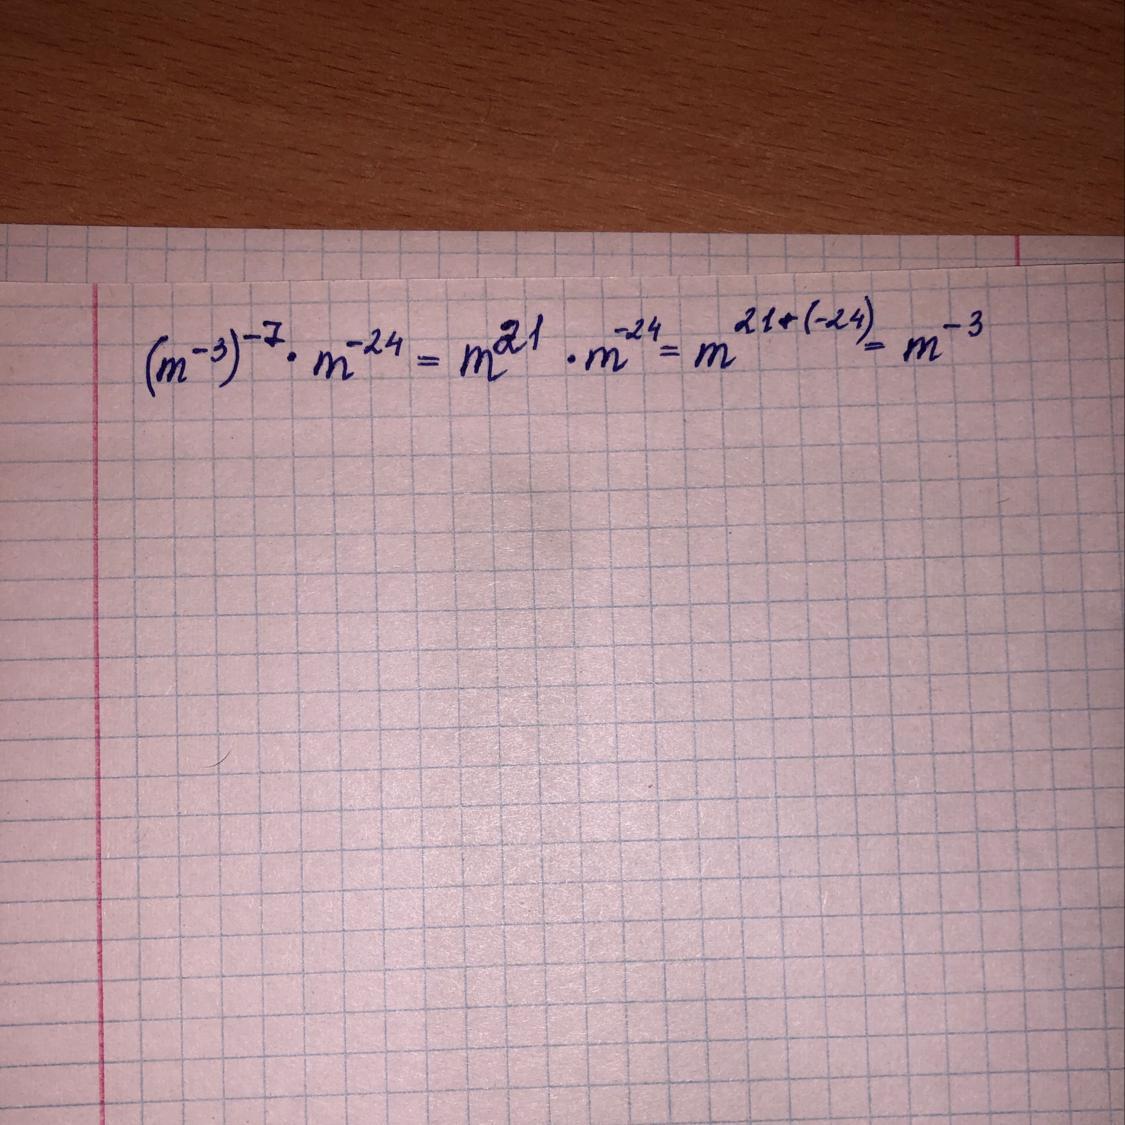 (m⁻³)⁻⁷ · m⁻²⁴ = m²¹ · m⁻²⁴ = m²¹⁺⁽⁻²⁴⁾ = m⁻³